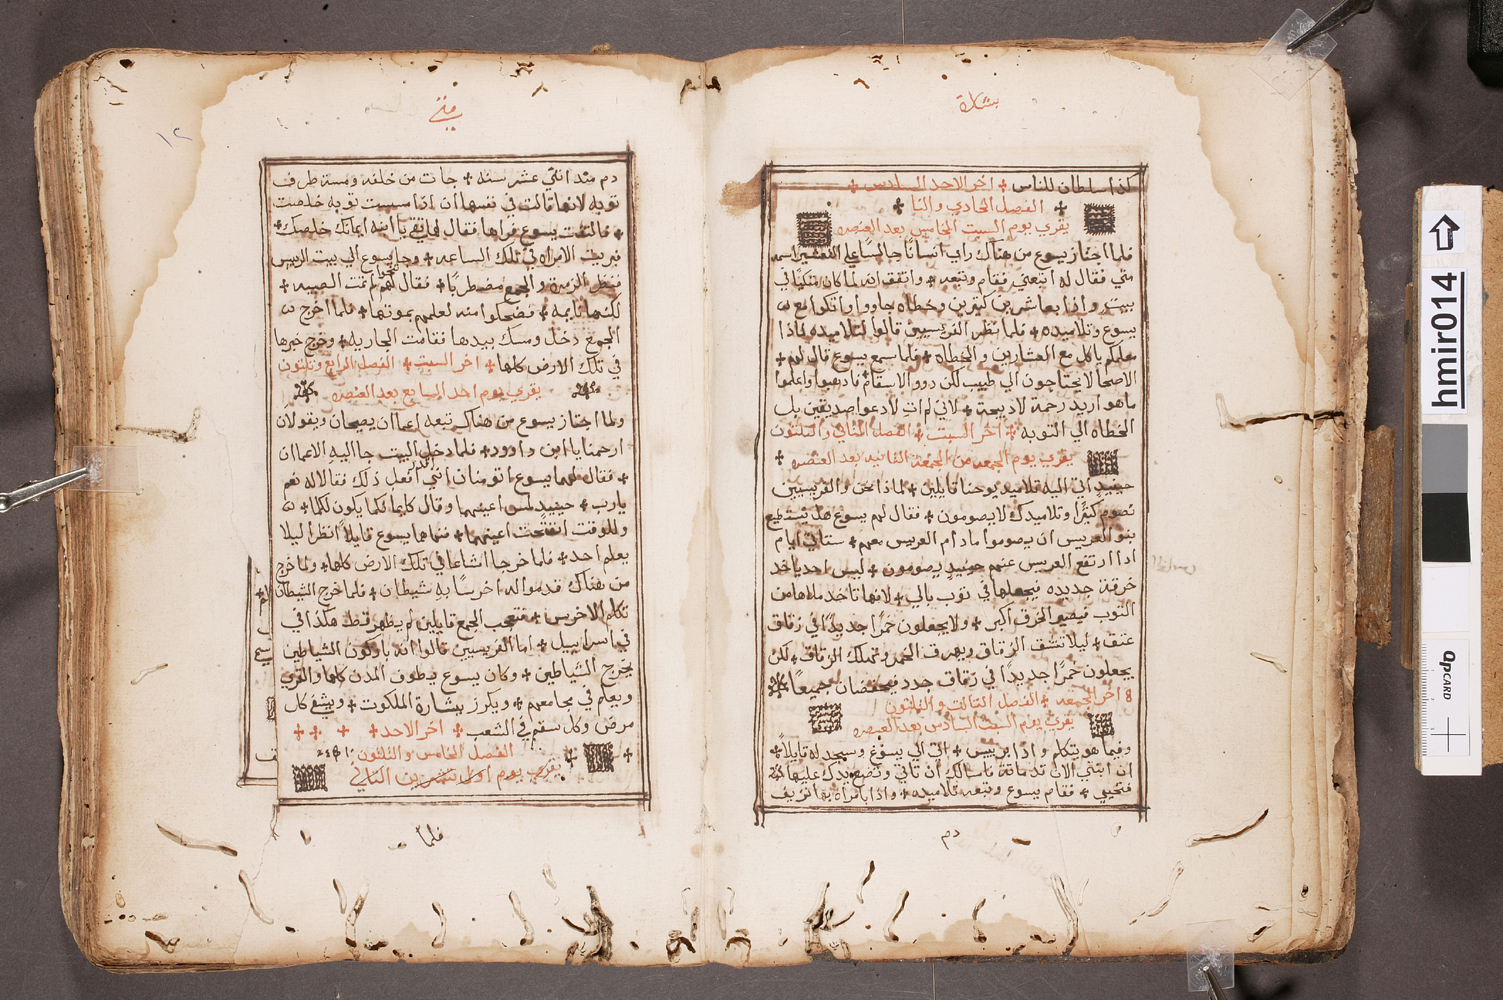 بشارة
كذا سلطان للناس + اخر الاحد السادس +
+ الفصل الحادي والثا +
يقري يوم السبت الخامس بعد العنصره
فلما اجتاز يسوع من هناك راي انسانا جالسا علي التعشير اسمه
متي فقال له اتبعني فقام وتبعه + واتفق انه لما كان متكيا في
بيت واذا بعاشرين كتيرين وخطاه جاووا واتكوا مع
يسوع وتلاميده + فلما نظر الفريسيين قالوا لتلاميده لماذا
معلمكم ياكل مع العشارين والخطاه + فلما سمع يسوع قال لهم +
الاصحا لا يحتاجون الي طبيب لكن دوو الاسقام فادهبوا واعلموا
ماهو اريد رحمة لا دبيحة + لاني لم ات لادعوا صديقين بل
الخطاه الي التوبه + اخر السبت + الفصل الثاني والثلثون
يقري يوم الجمعه من الجمعة الثانيه بعد العنصره +
حينيد اتي اليه تلاميد يوحنا قايلين + لماذا نحن والفريسيين
نصوم كثيرا وتلاميدك لا يصومون + فقال لهم يسوع هل يستطيع
بنو العريس ان يصوموا مادام العريس معهم + ستاتي ايام
ادا ارتفع العريس عنهم حينيد يصومون + ليس احد ياخد
خرقة جديده فيجعلها في توب بالي + لانها تاخد ملاها من
التوب فيصير الخرق اكبر + ولا يجعلون خمرا جديدا في زقاق
عتق + ليلا تنشق الزقاق ويهرق الخمر وتهلك الزقاق + لكن
يجعلون خمرا جديدا في زقاق جدد فيحفضان جميعا
اخر الجمعه + الفصل الثالث والثلثون
يقري يوم السبت السادس بعد العنصره
وفيما هو يتكلم واذا بريس + اتي الي يسوع وسجد له قايلا +
ان ابنتي الان قد ماتت فاسالك ان تاتي وتضع يدك عليها
فتحيي + فقام يسوع وتبعه تلاميده + واذا بامراه بها نزيف
دم
متي
١٢
دم مند اتني عشر سنه + جات من خلفه ومست طرف
توبه لانها قالت في نفسها ان انا مسست توبه خلصت
+ فالتفت يسوع فراها فقال لها تقي يا ابنه ايمانك خلصك +
فبريت الامراه في تلك الساعه + وجا يسوع الي بيت الرييس
فنظر الزمره والجمع مضطربا + فقال لهم لم تمت الصبيه +
لكنها نايمه + فضحكوا منه لعلمهم بموتها + فلما اخرج
الجمع دخل ومسك بيدها فقامت الجاريه + وخرج خبرها
في تلك الارض كلها + اخر السبت + الفصل الرابع وتلثون
يقري يوم احد السابع بعد العنصره
ولما اجتاز يسوع من هناك تبعه اعماان يصيحان ويقولان
ارحمنا يا ابن داوود + فلما دخل البيت جا اليه الاعماان
+ فقال لهما يسوع اتومنان انني افعل دلك فقالا له نعم
يارب + حينيد لمس اعينهما وقال كايمانكما يكون لكما +
وللوقت انفتحت اعينهما + فنهاهما يسوع قايلا انظرا ليلا
يعلم احد + فلما خرجا اشاعا في تلك الارض كلها + ولما خرج
من هناك قدموا له اخرسا به شيطان + فلما خرج الشيطان
تكلم الاخرس + فتعجب الجمع قايلين لم يظهر قط هكذا في
في اسراييل + اما الفريسيين قالوا انه باركون الشياطين
يخرج الشياطين + وكان يسوع يطوف المدن كلها والقري
ويعلم في مجامعهم + ويكرز ببشارة الملكوت + ويشفي كل
مرض وكل سقم في الشعب + اخر الاحد + + + +
الفصل الخامس والثلثون
يقري يوم اول تشرين الثاني
فلما
hmir014
QPCARD